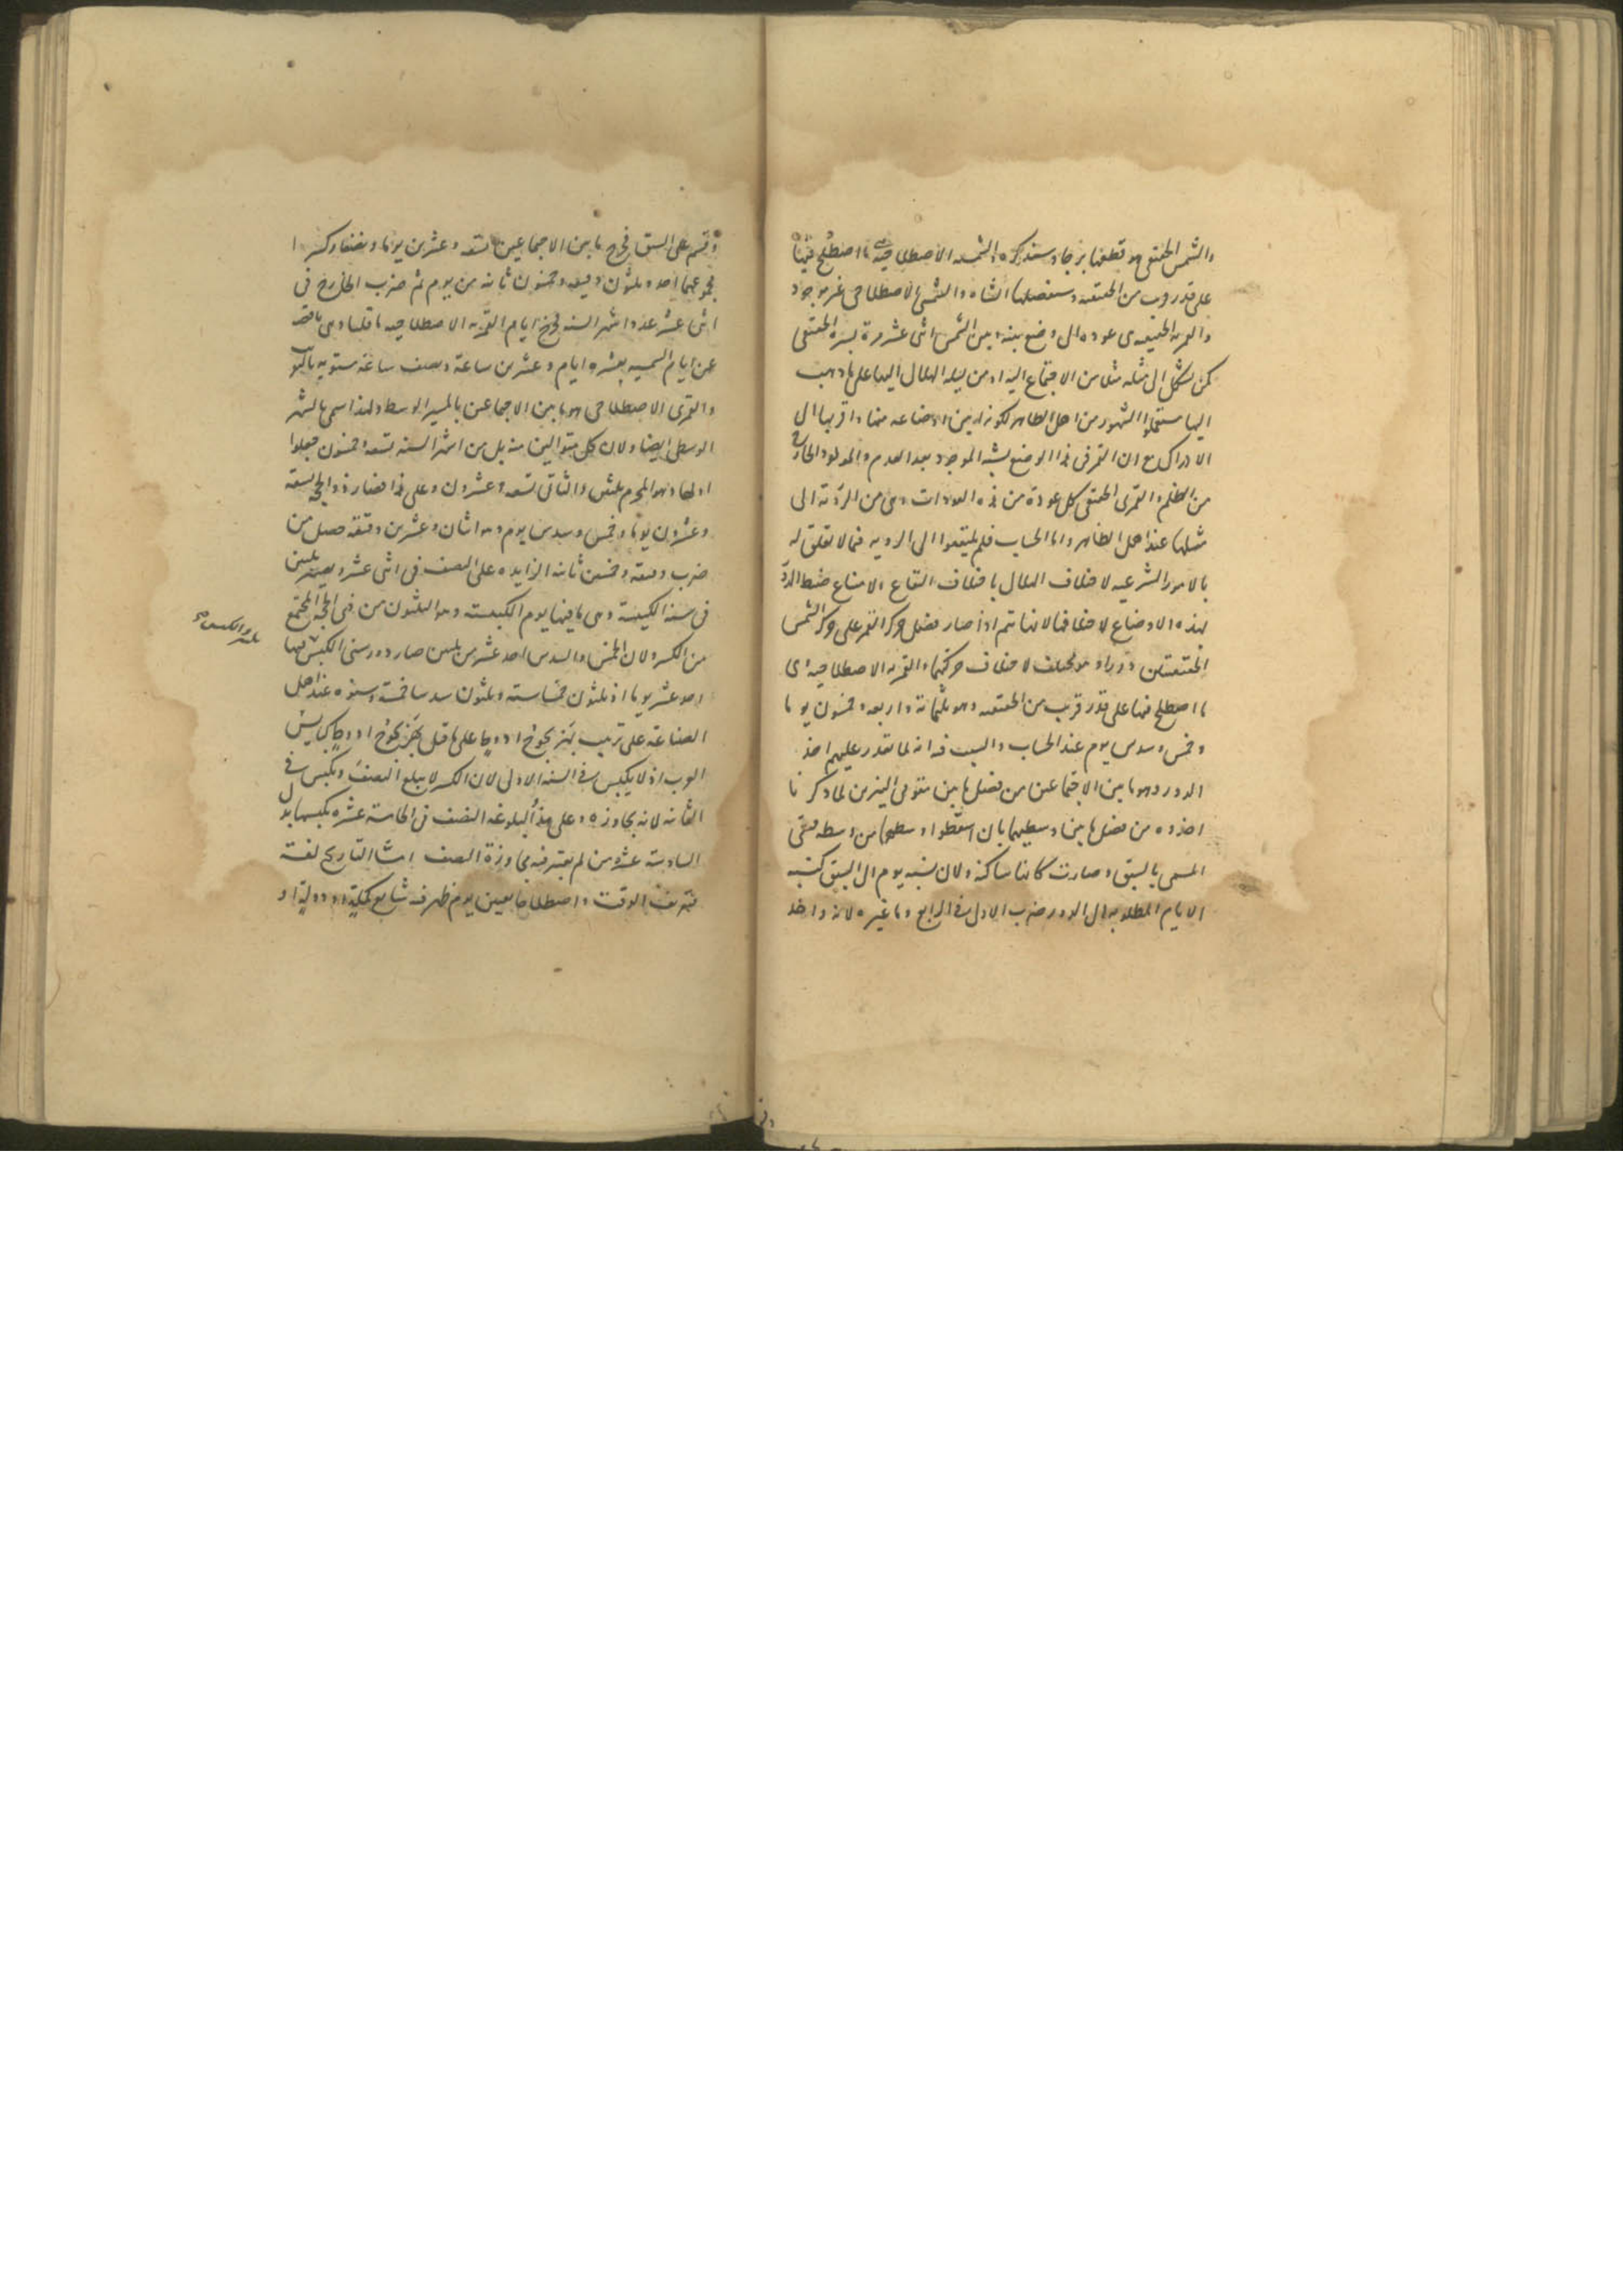 والشمس الحقيقى هو قطعها برجا وسنذكره والشمسه الاصطلاحية ما اصطلح فيها
على قدر قريب من الحقيقيه وسنفصلها انشاه والشمسى الاصطلاحى غير موجود
والقمريه الحقيقيه هى عوده الى وضع بينه وبين الشمس اثنى عشر مرة بسيره الحقيقى
كمن تشكل الى مثله مثلا من الاجتماع اليه او من ليله الهلال اليها على ما ذهب
اليها مستعملوا الشهور من اهل الظاهر لكونه ابين اوضاعه منها واقربها الى
الادراك مع ان القمر فى هذا الوضع يشبه الموجود بعد العدم والمولود الخارج
من الظلم والقمرى الحقيقى كل عودة من هذه العودات وهى من الرؤية الى
مثلها عند اهل الظاهر واما الحساب فلم يلتفتوا الى الرويه فيما لا تعلق له
بالامور الشرعيه لاختلاف الهلال باختلاف البقاع لامتناع ضبط الدور
لهذه الاوضاع لاختلافها لانها تتم اذا صار فضل حركة القمر على حركة الشمس
الحقيقيتين دورا وهو مختلف لاختلاف حركتهما والقمريه الاصطلاحيه هى
ما اصطلح فيها على قدر قريب من الحقيقيه وهو ثلثمائة واربعه وخمسون يوما
وخمس وسدس يوم عند الحساب والسبب فيه انه لما تعذر عليهم اخذ
الدور وهو ما بين الاجتماعين من فضل ما بين مقومى النيرين لما ذكرنا
اخذوه من فضل ما بين وسطيهما بان اسقطوا وسطها من وسطه فبقى
المسمى بالسبق وصارت كانها ساكنة ولان نسبه يوم الى السبق كنسبه
الايام المطلوبه الى الدور ضرب الاول فى الرابع وما غيره لانه واحد
وقسم على السبق فخرج ما بين الاجتماعين تسعه وعشرين يوما ونصفا وكسرا
مجموعهما احد وثلثون دقيقه وخمسون ثانيه من يوم ثم ضرب الخارج فى
اثنى عشر عدد اشهر السنه فخرج ايام القمريه الاصطلاحيه ما قلنا وهى ناقصه
عن ايام الشمسيه بعشره ايام وعشرين ساعة ونصف ساعة مستويه بالتقريب
والقمرى الاصطلاحى هو ما بين الاجتماعين بالمسير الوسط ولهذا سمى بالشهر
الوسطى ايضا ولان كل متواليين منه بل من اشهر السنه تسعه وخمسون جعلوا
اولها وهو المحرم ثلثين والثانى تسعه وعشرون وعلى هذا فصار ذو الحجه تسعه
وعشرون يوما وخمس وسدس يوم وهو اثنان وعشرين دقيقه حصل من
ضرب دقيقه وخمسين ثانيه الزايده على النصف فى اثنى عشر ويصير ثلثين
فى سنه الكبيسة وهى ما فيها يوم الكبيسه وهو الثلثون من ذى الحجه المجتمع
من الكسر ولان الخمس والسدس احد عشر من ثلثين صار دور سنى الكبس فيها
احد عشر يوما اذ ثلثون خمسا ستة وثلثون سدسا خمسة وسنوه عند اهل
الصناعة على ترتيب بهز يجوح ادوط على ما قيل بهز يجوح ادوط كبايس
العرب اذ لا يكبس فى السنه الاولى لان الكسر لا يبلغ النصف ويكبس فى
الثانيه لانه يجاوزه وعلى هذا لبلوغه النصف فى الخامسة عشره يكبسها بدل
السادسة عشر من لم يعتبر فيه مجاوزة النصف انشا التاريخ لغة
تعريف الوقت واصطلاحا تعيين يوم ظهر فيه شايع كملة او دولة او